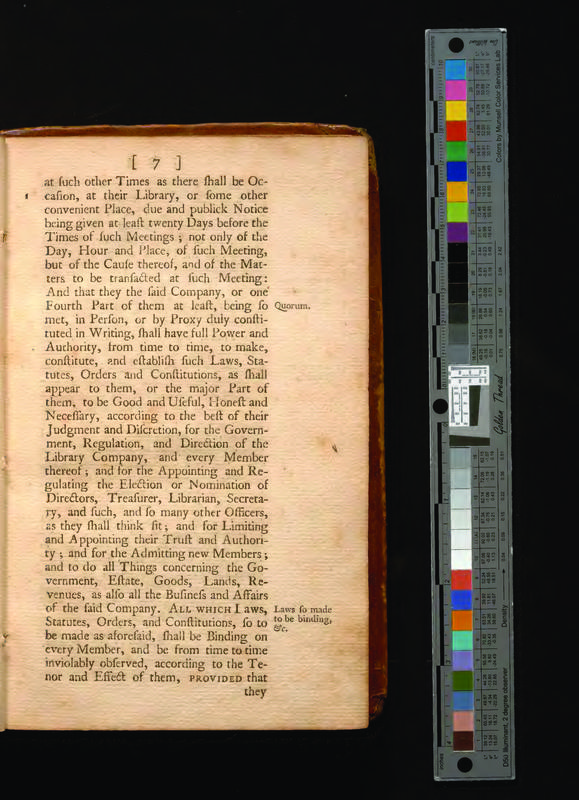 [ 7 ]
at ſuch other Times as there ſhall be Oc-
caſion, at their Library, or ſome other
convenient Place, due and publick Notice
being given at leaſt twenty Days before the
Times of ſuch Meetings ; not only of the
Day, Hour and Place, of ſuch Meeting,
but of the Cauſe thereof, and of the Mat-
ters to be tranſacted at ſuch Meeting:
And that they the ſaid Company, or one
Fourth Part of them at leaſt, being ſo
Quorum.
met, in Perſon, or by Proxy duly conſti-
tuted in Writing, ſhall have full Power and
Authority, from time to time, to make,
conſtitute, and eſtabliſh ſuch Laws, Sta-
tutes, Orders and Conſtitutions, as ſhall
appear to them, or the major Part of
them, to be Good and Uſeful, Honeſt and
Neceſſary, according to the beſt of their
Judgment and Diſcretion, for the Govern-
ment, Regulation, and Direction of the
Library Company, and every Member
thereof ; and for the Appointing and Re-
gulating the Election or Nomination of
Directors, Treaſurer, Librarian, Secreta-
ry, and ſuch, and ſo many other Officers,
as they ſhall think fit ; and for Limiting
and Appointing their Truſt and Authori-
ty ; and for the Admitting new Members ;
and to do all Things concerning the Go-
vernment, Eſtate, Goods, Lands, Re-
venues, as alſo all the Buſineſs and Affairs
of the ſaid Company. ALL WHICH Laws,
Statutes, Orders, and Conſtitutions, ſo to
be made as aforeſaid, ſhall be Binding on
every Member, and be from time to time
inviolably obſerved, according to the Te-
nor and Effect of them, PROVIDED that
they
Laws ſo made
to be binding,
&c.
Colors by Munsell Color Services Lab
Golden Thread
Density
D50 Illuminant, 2 degree observer
centimeters
inches